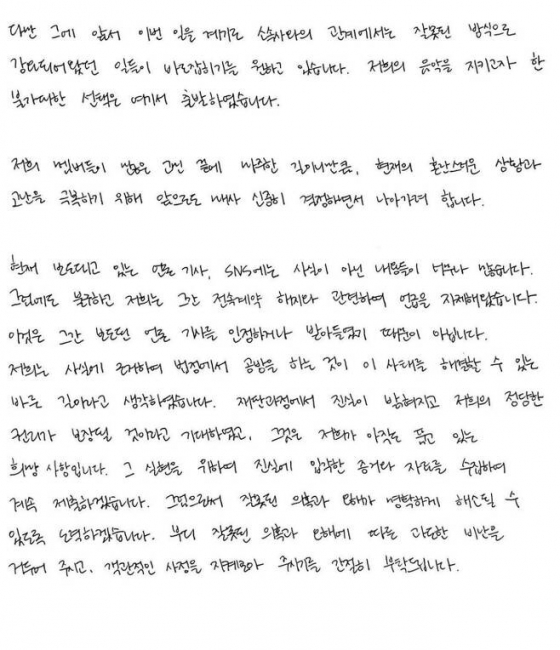 다만 그에 앞서 이번 일을 계기로 소속사와의 관계에서는 잘못된 방식으로
강요되어왔던 일들이 바로잡히기를 원하고 있습니다. 저희의 음악을 지키고자 한
불가피한 선택은 여기서 출발하였습니다.
저희 멤버들이 많은 고민 끝에 마주한 길이니만큼, 현재의 혼란스러운 상황과
고난을 극복하기 위해 앞으로도 매사 신중히 결정하면서 나아가려 합니다.
현재 보도되고 있는 언론 기사, SNS에는 사실이 아닌 내용들이 너무나 많습니다.
그럼에도 불구하고 저희는 그간 전속계약 해지와 관련하여 언급을 자제해왔습니다.
이것은 그간 보도된 언론 기사를 인정하거나 받아들였기 때문이 아닙니다.
저희는 사실에 근거하여 법정에서 공방을 하는 것이 이 사태를 해명할 수 있는
바른 길이라고 생각하였습니다. 재판과정에서 진실이 밝혀지고 저희의 정당한
권리가 보장될 것이라고 기대하였고, 그것은 저희가 아직도 품고 있는
희망 사항입니다. 그 실현을 위하여 진실에 입각한 증거와 자료를 수집하여
계속 제출하겠습니다. 그럼으로써 잘못된 의혹과 오해가 명확하게 해소될 수
있도록 노력하겠습니다. 부디 잘못된 의혹과 오해에 따른 과도한 비난을
거두어 주시고, 객관적인 사정을 지켜보아 주시기를 간절히 부탁드립니다.